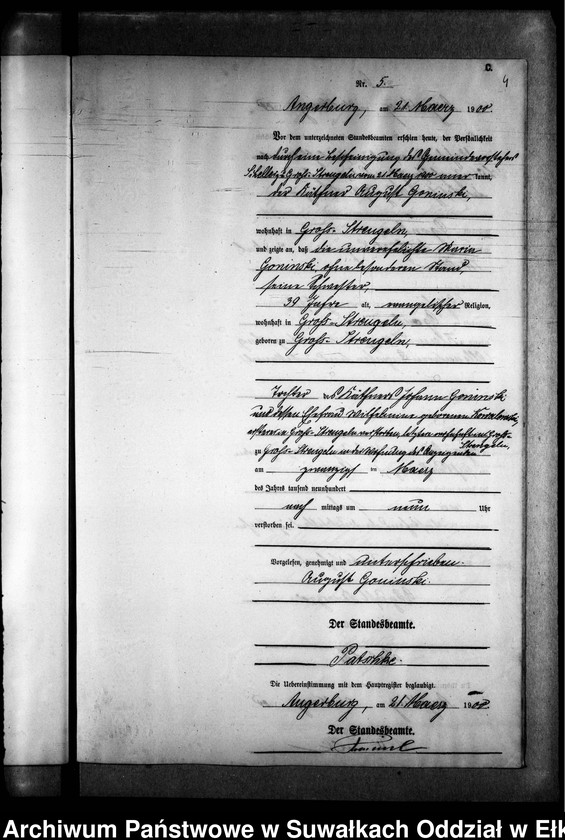 C.
4
Nr. 5.
Angerburg, am 21. Maerz 1900.
Vor dem unterzeichneten Standesbeamten erschien heute, der Persönlichkeit
nach durch eine Bescheinigung des Gemeindevorstehers
Gross-Strengeln vom 21. Maerz kannt,
der Käthner August Goninski,
wohnhaft in Gross-Strengeln,
und zeigte an, daß die unverehelichte Maria
Goninski, ohne besonderen Stand,
seine Schwester,
39 Jahre alt, evangelischer Religion,
wohnhaft in Gross-Strengeln,
geboren zu Gross-Strengeln,
Tochter des Käthners Johann Goninski
und dessen Ehefrau Wilhelmine geborenen
ersterer in Gross-Strengeln verstorben, letztere wohnhaft in Gross-
Strengeln,
zu Gross-Strengeln in der Wohnung des Anzeigenden
am zwanzigsten Maerz
des Jahres tausend neunhundert
nach mittags um neun Uhr
verstorben sei.
Vorgelesen, genehmigt und unterschrieben.
August Goninski.
Der Standesbeamte.
Patschke.
Die Uebereinstimmung mit dem Hauptregister beglaubigt.
Angerburg, am 21. Maerz 1900.
Der Standesbeamte.
Archiwum Państwowe w Suwałkach Oddział w Ełk